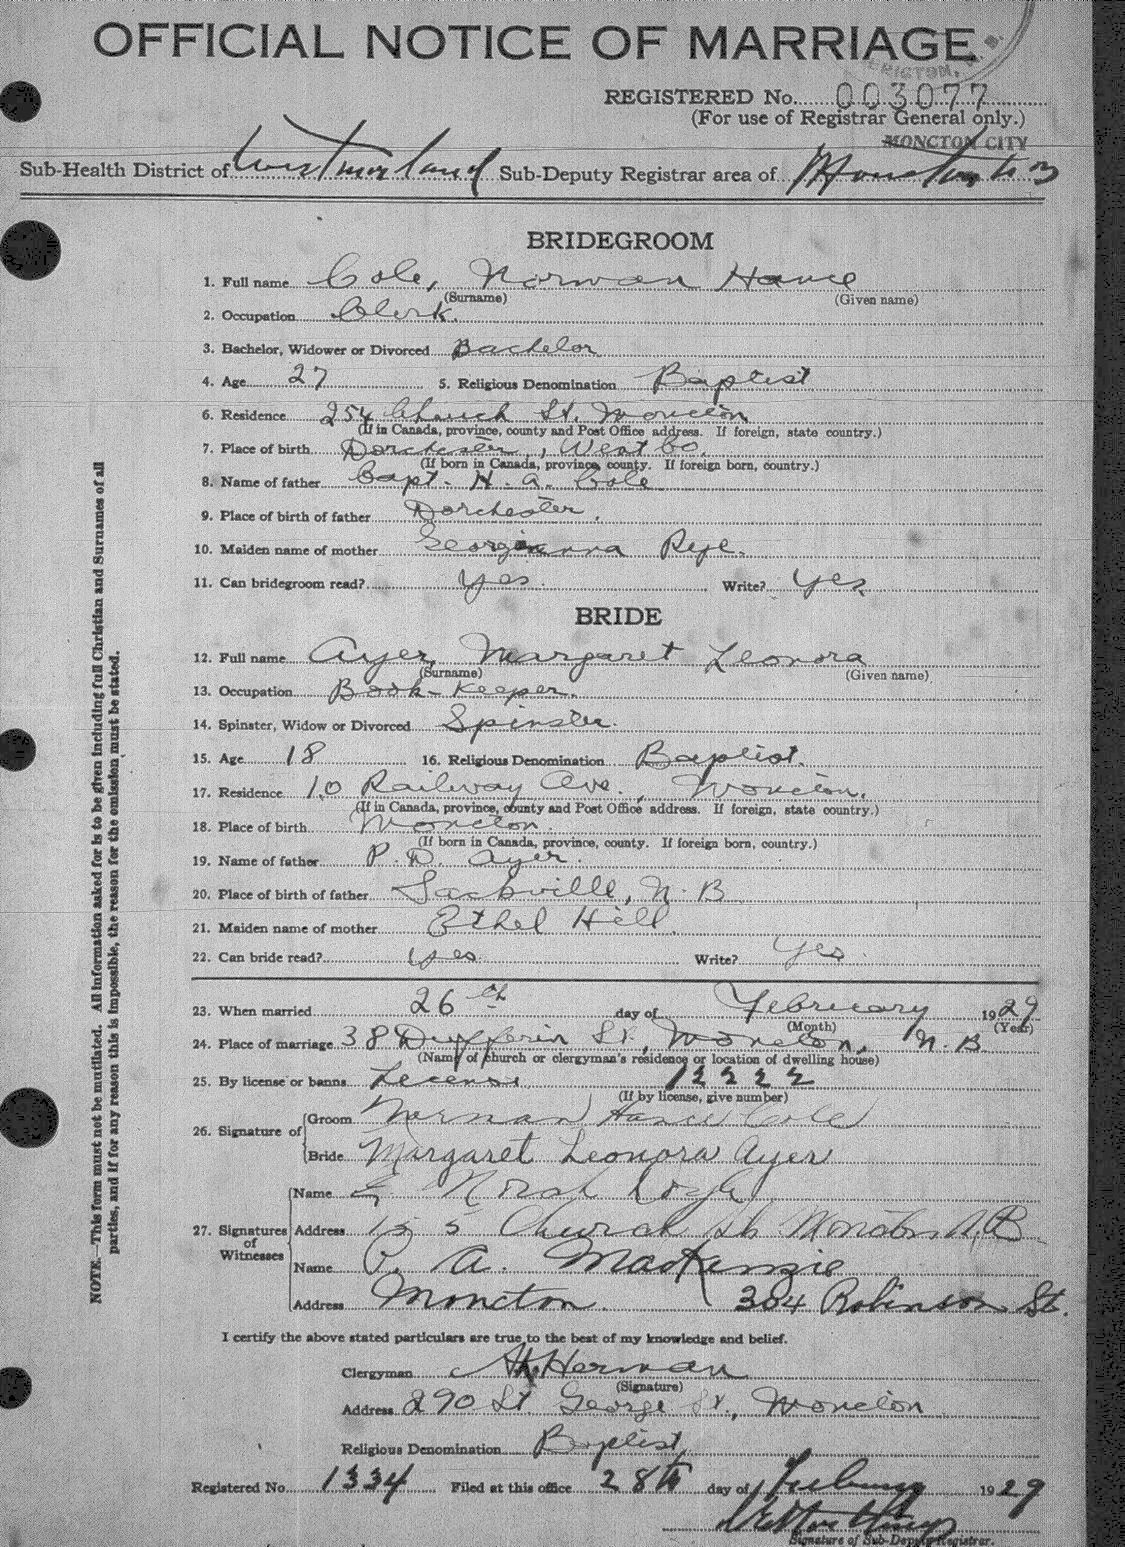 OFFICIAL NOTICE OF MARRIAGE
ERICTON, N. B.
REGISTERED No. 003077
(For use of Registrar General only.)
MONCTON CITY
Sub-Health District of Westmorland Sub-Deputy Registrar area of Moncton
BRIDEGROOM
1. Full name Cole, Norman Hance
(Surname) (Given name)
2. Occupation Clerk.
3. Bachelor, Widower or Divorced Bachelor
4. Age 27 5. Religious Denomination Baptist
6. Residence 254 Church St. Moncton
(If in Canada, province, county and Post Office address. If foreign, state country.)
7. Place of birth Dorchester, West Co.
(If born in Canada, province, county. If foreign born, country.)
8. Name of father Capt. H. A. Cole
9. Place of birth of father Dorchester.
10. Maiden name of mother Georgianna
11. Can bridegroom read? yes. Write? yes
BRIDE
12. Full name Ayer, Margaret Leonora
(Surname) (Given name)
13. Occupation Book-Keeper.
14. Spinster, Widow or Divorced Spinster.
15. Age 18 16. Religious Denomination Baptist.
17. Residence 10 Railway Ave., Moncton.
(If in Canada, province, county and Post Office address. If foreign, state country.)
18. Place of birth Moncton.
(If born in Canada, province, county. If foreign born, country.)
19. Name of father P. D. Ayer.
20. Place of birth of father Sackville, N. B
21. Maiden name of mother Ethel Hill.
22. Can bride read? yes. Write? Yes.
23. When married 26th day of February 1929
(Month) (Year)
24. Place of marriage 38 Dufferin St., Moncton, N. B.
(Name of church or clergyman's residence or location of dwelling house)
25. By license or banns License 12222
(If by license, give number)
26. Signature of Groom Norman Hance Cole
Bride Margaret Leonora Ayer
27. Signatures of Witnesses
Name E Norah
Address 155 Church St. Moncton N. B
Name P. A. MacKenzie
Address Moncton. 304 Robinson St.
I certify the above stated particulars are true to the best of my knowledge and belief.
Clergyman Herman
(Signature)
Address 290 St. George St., Moncton
Religious Denomination Baptist
Registered No. 1334 Filed at this office 28th day of February 1929
Signature of Sub-Deputy Registrar.
NOTE.—This form must not be mutilated. All information asked for is to be given including full Christian and Surnames of all
parties, and if for any reason this is impossible, the reason for the omission must be stated.